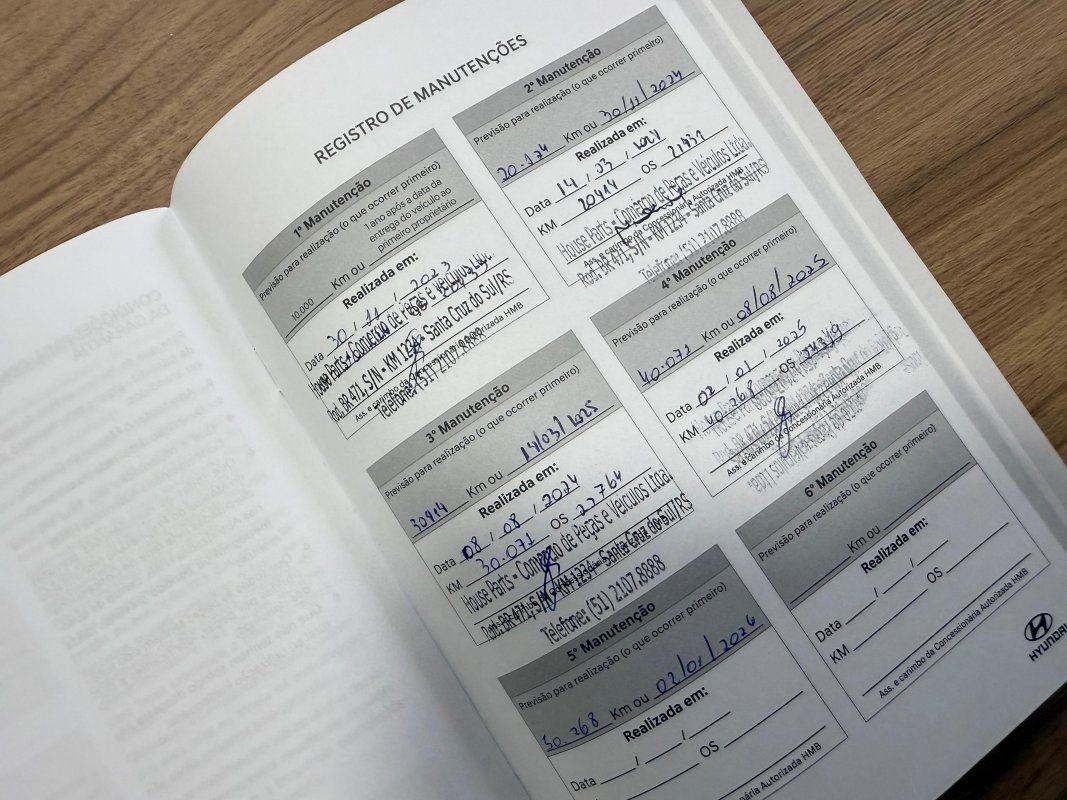 REGISTRO DE MANUTENÇÕES
1º Manutenção
Previsão para realização (o que ocorrer primeiro)
1 ano após a data da
entrega do veículo ao
primeiro proprietário
10.000 Km ou
Realizada em:
Data 30 / 11 / 2023
House Parts - Comércio de Peças e Veículos
Rod. BR 471, S/N - KM 1234 - Santa Cruz do Sul/RS
Ass. e carimbo da Concessionária Autorizada HMB
Telefone: (51) 2107.8888
2º Manutenção
Previsão para realização (o que ocorrer primeiro)
20.124 Km ou 30/11/2024
Realizada em:
Data 14 / 03 /
KM 20414 OS 21431
House Parts - Comércio de Peças e Veículos Ltda.
Ass. e carimbo da Concessionária Autorizada HMB
Rod. BR 471, S/N - KM 1234 - Santa Cruz do Sul/RS
Telefone: (51) 2107.8888
3º Manutenção
Previsão para realização (o que ocorrer primeiro)
30414 Km ou 14/03/2025
Realizada em:
Data 08 / 08 / 2024
KM 30.071 OS 22764
House Parts - Comércio de Peças e Veículos Ltda.
Rod. BR 471, S/N - KM 1234 - Santa Cruz do Sul/RS
Telefone: (51) 2107.8888
4º Manutenção
Previsão para realização (o que ocorrer primeiro)
40.071 Km ou 08/08/2025
Realizada em:
Data 02 / 01 / 2025
KM 40.268 OS
Ass. e carimbo da Concessionária Autorizada HMB
5º Manutenção
Previsão para realização (o que ocorrer primeiro)
50.268 Km ou 02/01/2026
Realizada em:
Data / /
KM OS
Concessionária Autorizada HMB
6º Manutenção
Previsão para realização (o que ocorrer primeiro)
Km ou
Realizada em:
Data / /
KM OS
Ass. e carimbo da Concessionária Autorizada HMB
HYUNDAI